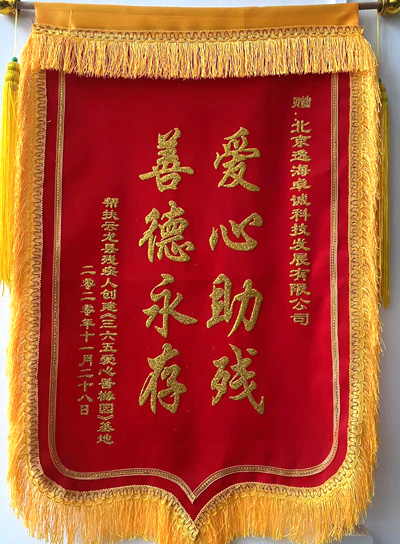 赠:北京逸海卓诚科技发展有限公司
爱心助残
善德永存
帮扶云龙县残疾人创建《三六五爱心善橼园》基地
二零二零年十一月二十八日